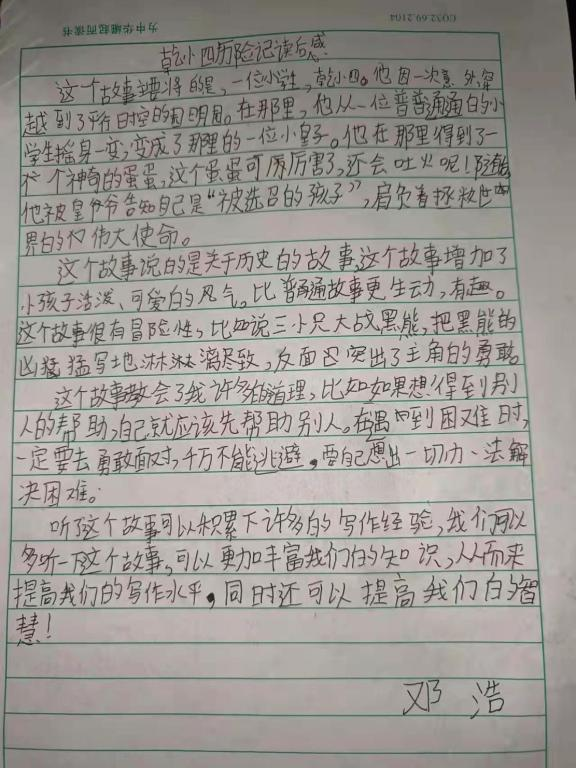 为中华崛起而读书
C032.69.2104
乾小四历险记读后感
这个故事主要将的是,一位小学生,乾小四。他因一次意外穿
越到了平行时空的圆明园。在那里,他从一位普普通通的小
学生摇身一变,变成了那里的一位小皇子。他在那里得到了一
个神奇的蛋蛋,这个蛋蛋可厉厉害了,还会吐火呢!
他被皇爷爷告知自己是“被选召的孩子”,肩负着拯救世
界的伟大使命。
这个故事说的是关于历史的故事,这个故事增加了
小孩子活泼、可爱的风气。比普通故事更生动,有趣。
这个故事很有冒险性,比如说三小只大战黑熊,把黑熊的
凶猛猛写地淋淋漓尽致,反面突出了主角的勇敢
这个故事教会了我许多的道理,比如如果想得到别
人的帮助,自己就应该先帮助别人。在遇到困难时,
一定要去勇敢面对,千万不能逃避。要自己想出一切办法解
决困难。
听了这个故事可以积累下许多的写作经验,我们可以
多听一下这个故事,可以更加丰富我们的知识,从而来
提高我们的写作水平,同时还可以提高我们的智
慧!
邓浩